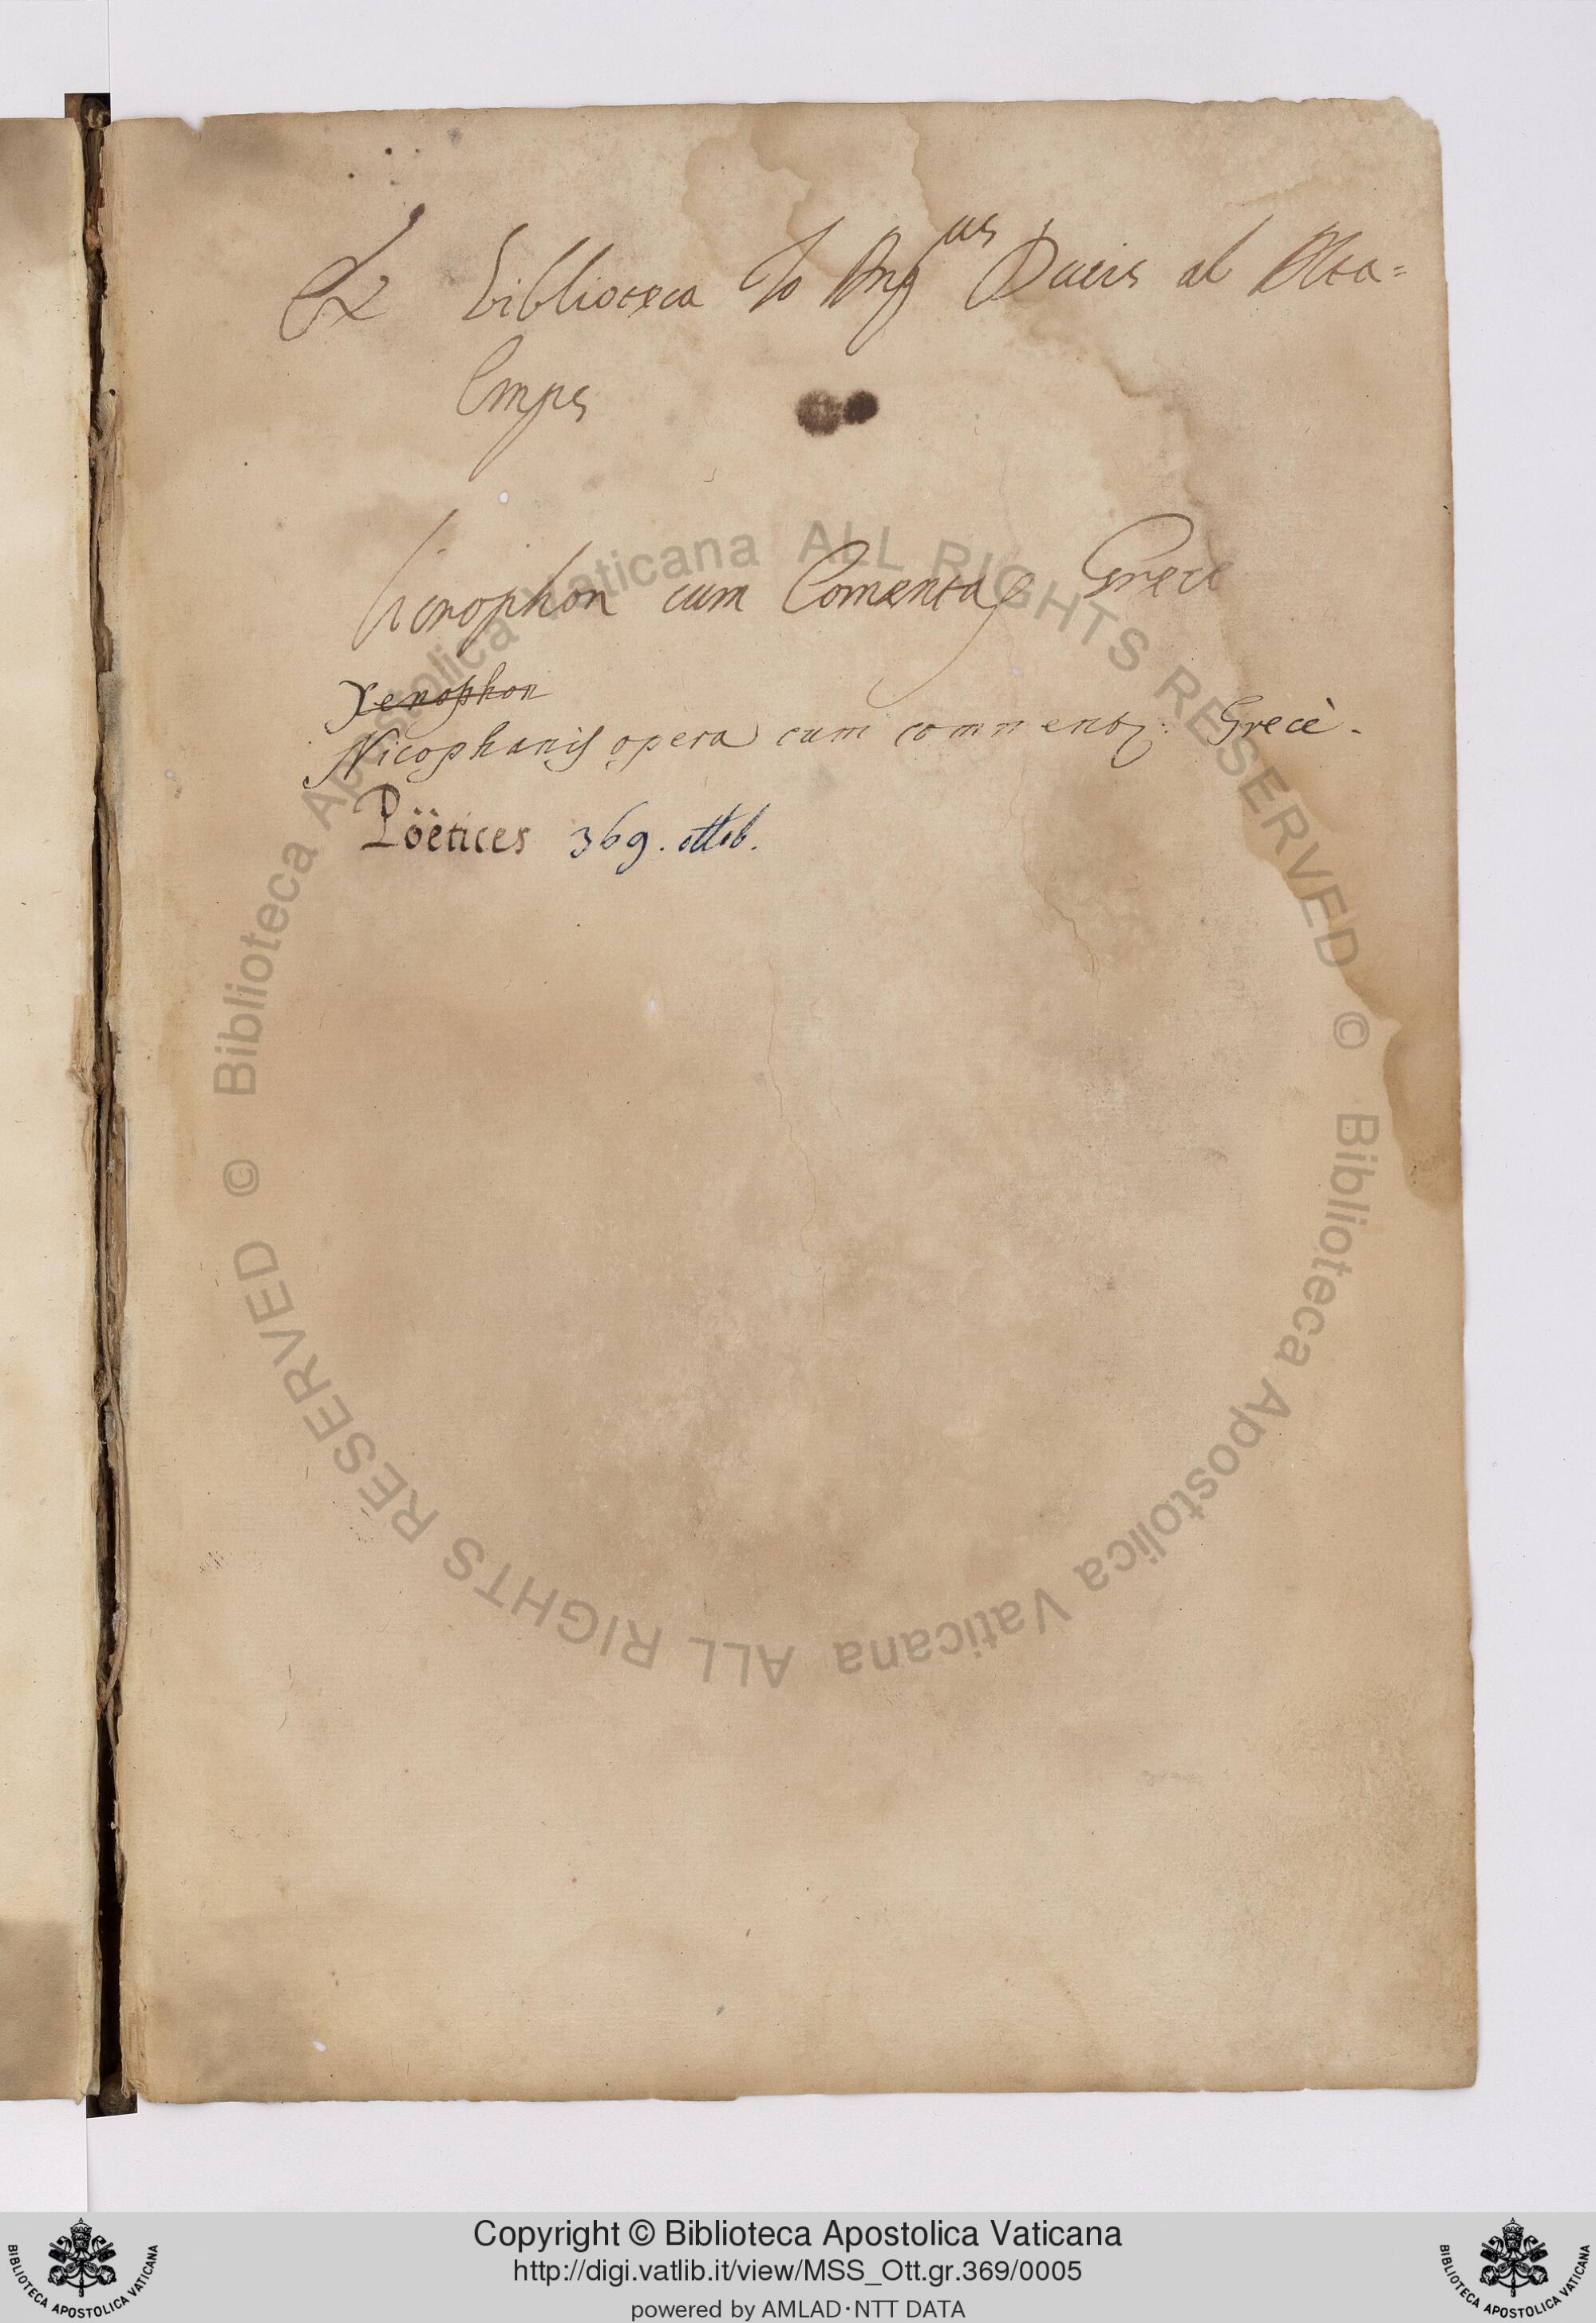 Ex biblioteca Jo Ang us Ducis ab Alta=
Emps
licnophon cum Comenta Grece
Xenophon
Nicophanis opera cum comment: Grecè.
Pöëtices 369. ottob.
© Biblioteca Apostolica Vaticana ALL RIGHTS RESERVED
© Biblioteca Apostolica Vaticana ALL RIGHTS RESERVED
Copyright © Biblioteca Apostolica Vaticana
http://digi.vatlib.it/view/MSS_Ott.gr.369/0005
powered by AMLAD·NTT DATA
BIBLIOTECA APOSTOLICA VATICANA
BIBLIOTECA APOSTOLICA VATICANA